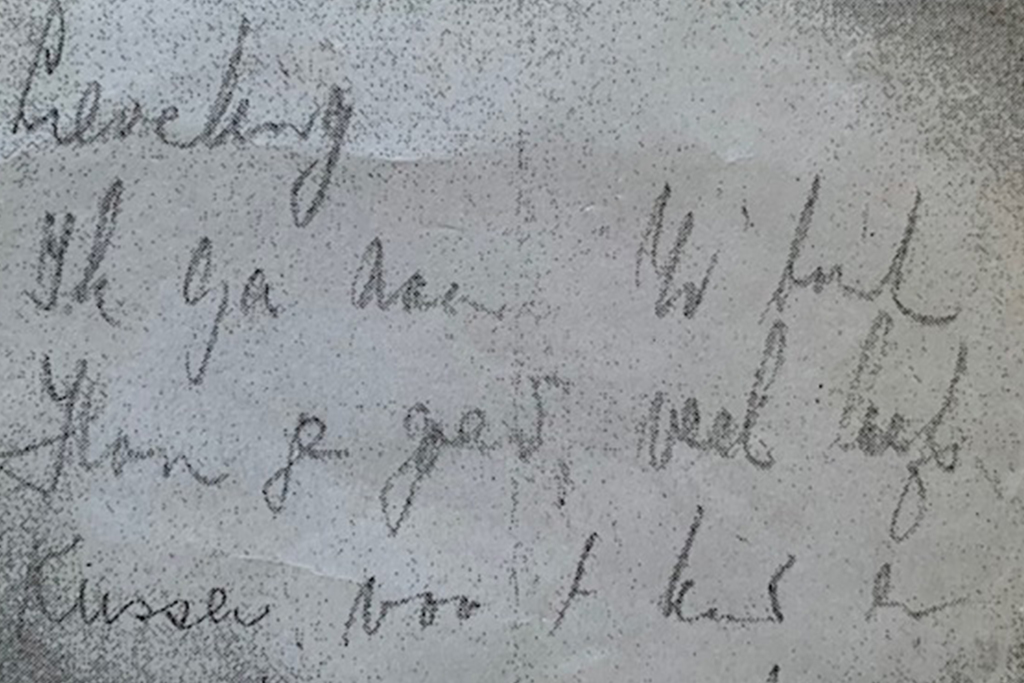 Lieveling
Ik ga naar
Hou je goed veel liefs
Kussen voor t kind en